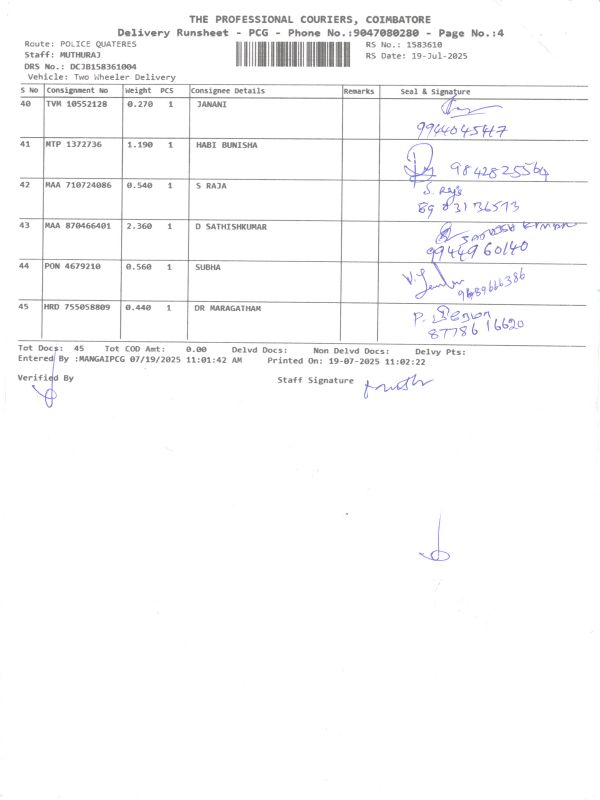 THE PROFESSIONAL COURIERS, COIMBATORE
Delivery Runsheet - PCG - Phone No.:9047080280 - Page No.:4
Route: POLICE QUATERES RS No.: 1583610
Staff: MUTHURAJ RS Date: 19-Jul-2025
DRS No.: DCJB158361004
Vehicle: Two Wheeler Delivery
S No Consignment No Weight PCS Consignee Details Remarks Seal & Signature
40 TVM 10552128 0.270 1 JANANI
9944045417
41 MTP 1372736 1.190 1 HABI BUNISHA
9842825564
42 MAA 710724086 0.540 1 S RAJA S. Raja
89 03136573
43 MAA 870466401 2.360 1 D SATHISHKUMAR
9944960140
44 PON 4679210 0.560 1 SUBHA
45 HRD 755058809 0.440 1 DR MARAGATHAM P.
87786 16620
Tot Docs: 45 Tot COD Amt: 0.00 Delvd Docs: Non Delvd Docs: Delvy Pts:
Entered By :MANGAIPCG 07/19/2025 11:01:42 AM Printed On: 19-07-2025 11:02:22
Verified By Staff Signature